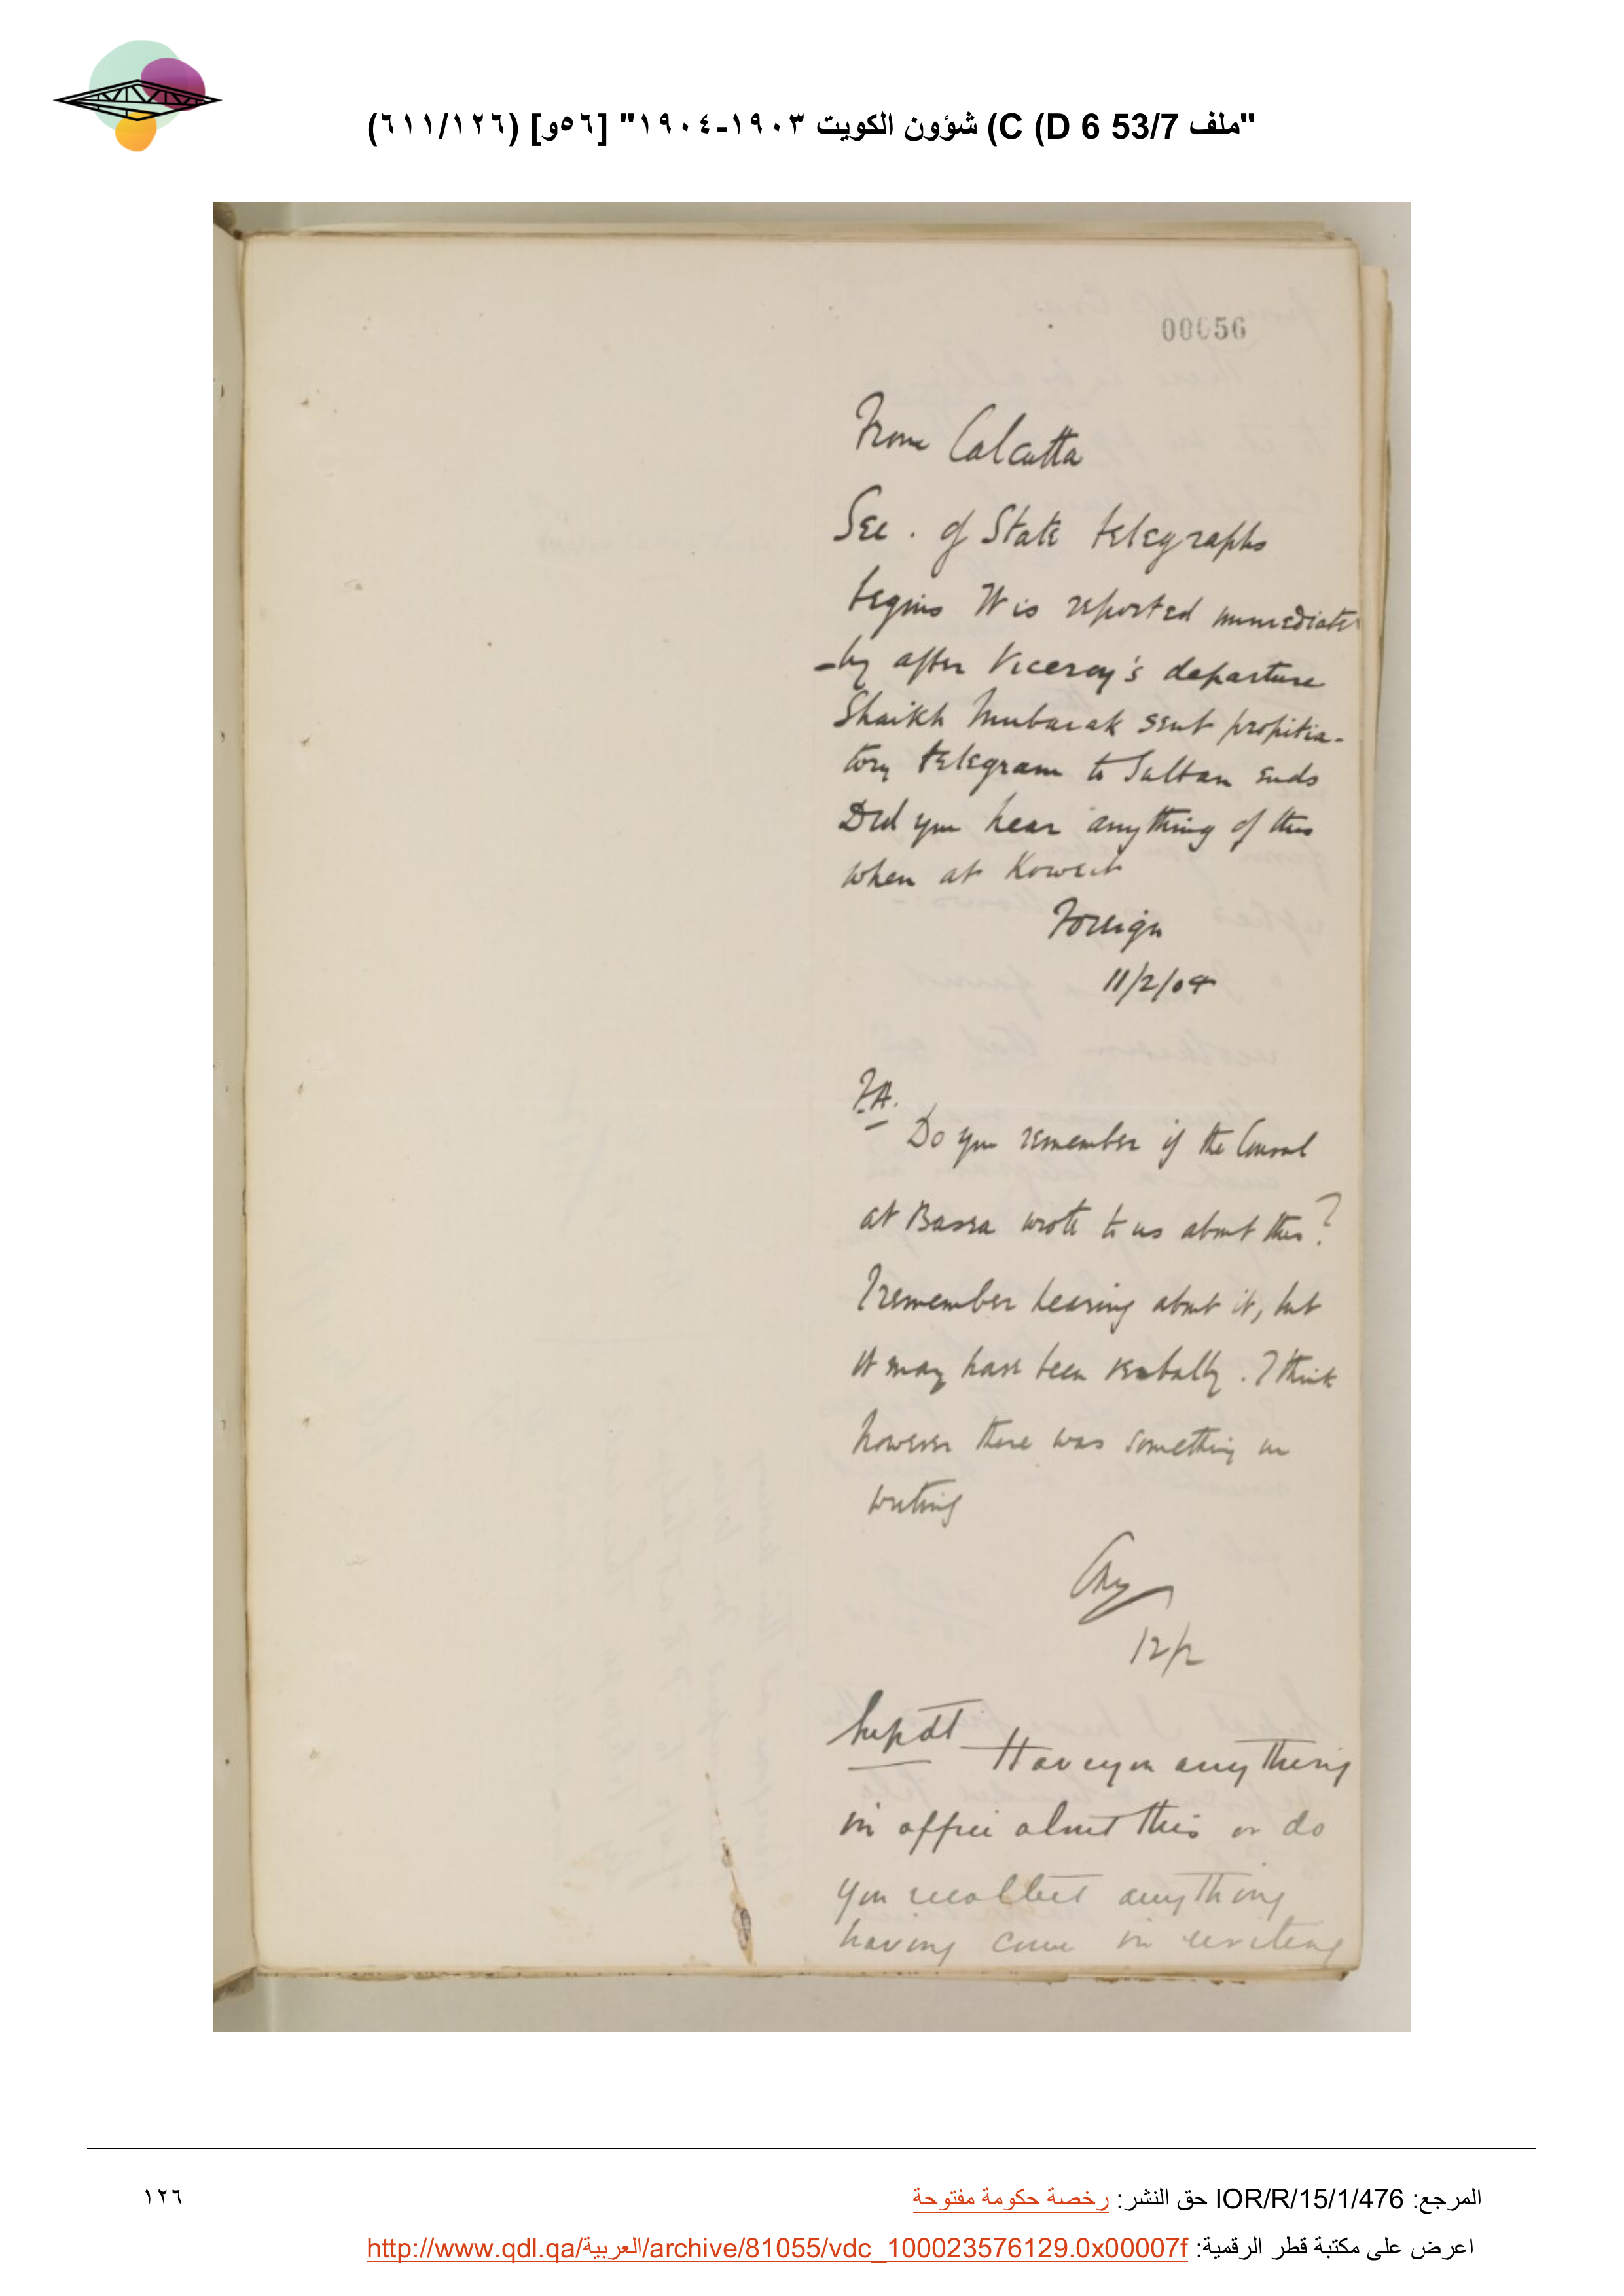 "ملف 53/7 C (D 6) شؤون الكويت ١٩٠٣-١٩٠٤" [٥٦و] (٦١١/١٢٦)
00056
From Calcutta
Sec. of State telegraphs
begins It is reported immediate
-ly after Viceroy's departure
Shaikh Mubarak sent propitia-
tory telegram to Sultan ends
Did you hear anything of this
when at Koweit
Foreign
11/2/04
F.A.
Do you remember if the Consul
at Basra wrote to us about this?
I remember hearing about it, but
it may have been verbally. I think
however there was something in
writing
12/2
Supdt Have you any thing
in office about this or do
you recollect any thing
having come in writing
المرجع: IOR/R/15/1/476 حق النشر: رخصة حكومة مفتوحة
١٢٦
اعرض على مكتبة قطر الرقمية: http://www.qdl.qa/العربية/archive/81055/vdc_100023576129.0x00007f